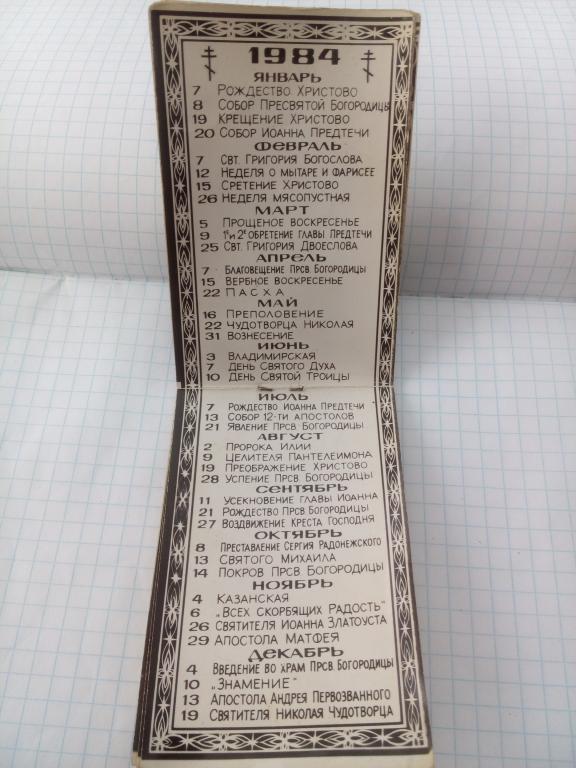 1984
ЯНВАРЬ
7 РОЖДЕСТВО ХРИСТОВО
8 СОБОР ПРЕСВЯТОЙ БОГОРОДИЦЫ
19 КРЕЩЕНИЕ ХРИСТОВО
20 СОБОР ИОАННА ПРЕДТЕЧИ
ФЕВРАЛЬ
7 СВТ. ГРИГОРИЯ БОГОСЛОВА
12 НЕДЕЛЯ О МЫТАРЕ И ФАРИСЕЕ
15 СРЕТЕНИЕ ХРИСТОВО
26 НЕДЕЛЯ МЯСОПУСТНАЯ
МАРТ
5 ПРОЩЕНОЕ ВОСКРЕСЕНЬЕ
9 1е И 2е ОБРЕТЕНИЕ ГЛАВЫ ПРЕДТЕЧИ
25 СВТ. ГРИГОРИЯ ДВОЕСЛОВА
АПРЕЛЬ
7 БЛАГОВЕЩЕНИЕ ПРСВ. БОГОРОДИЦЫ
15 ВЕРБНОЕ ВОСКРЕСЕНЬЕ
22 ПАСХА
МАЙ
16 ПРЕПОЛОВЕНИЕ
22 ЧУДОТВОРЦА НИКОЛАЯ
31 ВОЗНЕСЕНИЕ
ИЮНЬ
3 ВЛАДИМИРСКАЯ
7 ДЕНЬ СВЯТОГО ДУХА
10 ДЕНЬ СВЯТОЙ ТРОИЦЫ
ИЮЛЬ
7 РОЖДЕСТВО ИОАННА ПРЕДТЕЧИ
13 СОБОР 12-ТИ АПОСТОЛОВ
21 ЯВЛЕНИЕ ПРСВ. БОГОРОДИЦЫ
АВГУСТ
2 ПРОРОКА ИЛИИ
9 ЦЕЛИТЕЛЯ ПАНТЕЛЕИМОНА
19 ПРЕОБРАЖЕНИЕ ХРИСТОВО
28 УСПЕНИЕ ПРСВ. БОГОРОДИЦЫ
СЕНТЯБРЬ
11 УСЕКНОВЕНИЕ ГЛАВЫ ИОАННА
21 РОЖДЕСТВО ПРСВ. БОГОРОДИЦЫ
27 ВОЗДВИЖЕНИЕ КРЕСТА ГОСПОДНЯ
ОКТЯБРЬ
8 ПРЕСТАВЛЕНИЕ СЕРГИЯ РАДОНЕЖСКОГО
13 СВЯТОГО МИХАИЛА
14 ПОКРОВ ПРСВ. БОГОРОДИЦЫ
НОЯБРЬ
4 КАЗАНСКАЯ
6 „ВСЕХ СКОРБЯЩИХ РАДОСТЬ"
26 СВЯТИТЕЛЯ ИОАННА ЗЛАТОУСТА
29 АПОСТОЛА МАТФЕЯ
ДЕКАБРЬ
4 ВВЕДЕНИЕ ВО ХРАМ ПРСВ. БОГОРОДИЦЫ
10 „ЗНАМЕНИЕ"
13 АПОСТОЛА АНДРЕЯ ПЕРВОЗВАННОГО
19 СВЯТИТЕЛЯ НИКОЛАЯ ЧУДОТВОРЦА